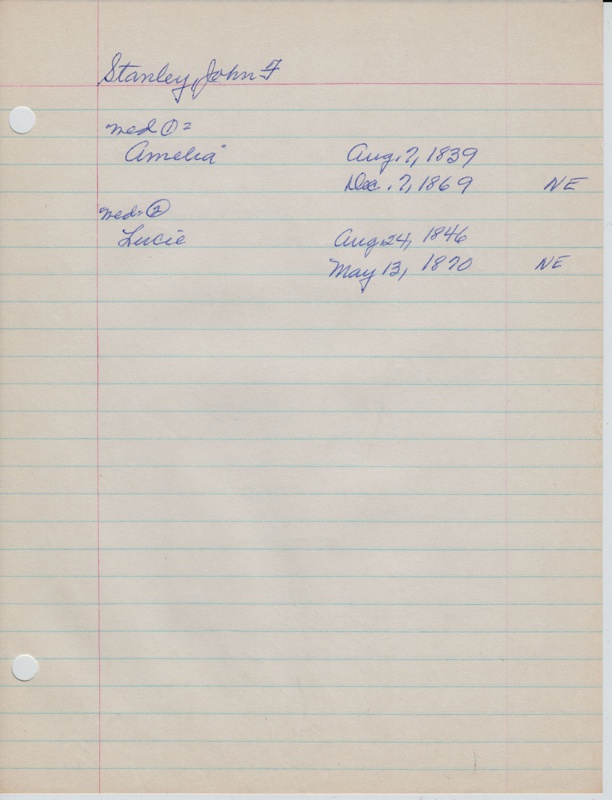 Stanley, John F
med ① =
Amelia Aug. 7, 1839
Dec. 7, 1869 NE
med = ②
Lucie Aug. 24, 1846
May 13, 1870 NE